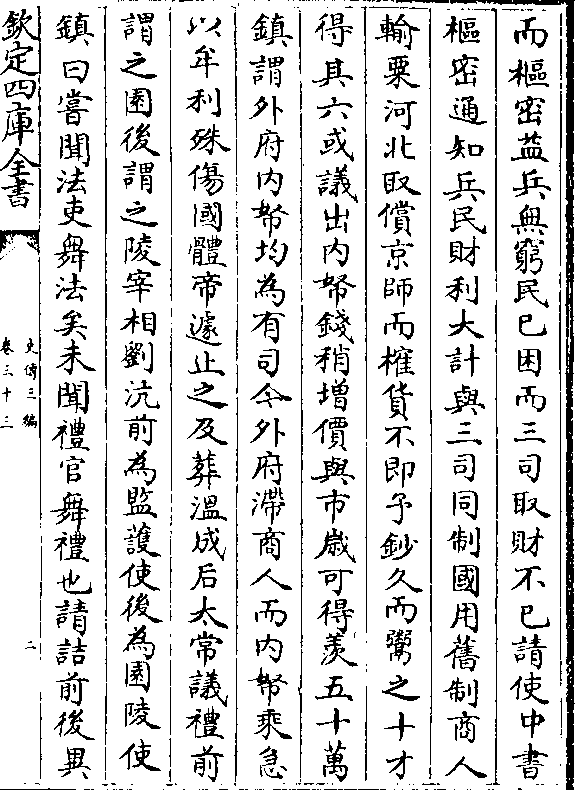 而樞密益兵無窮民已困而三司取財不已請使中書
樞密通知兵民財利大計與三司同制國用舊制商人
輸粟河北取償京師而榷貨不即予鈔久而鬻之十才
得其六或議出内帑錢稍增價與市歲可得羡五十萬
鎮謂外府内帑均為有司今外府滯商人而内帑乗急
以牟利殊傷國體帝遽止之及葬温成后太常議禮前
謂之園後謂之陵宰相劉沆前為監䕶使後為園陵使
鎮曰嘗聞法吏舞法矣未聞禮官舞禮也請詰前後異
欽定四庫全書
史傳三編
卷三十三
二